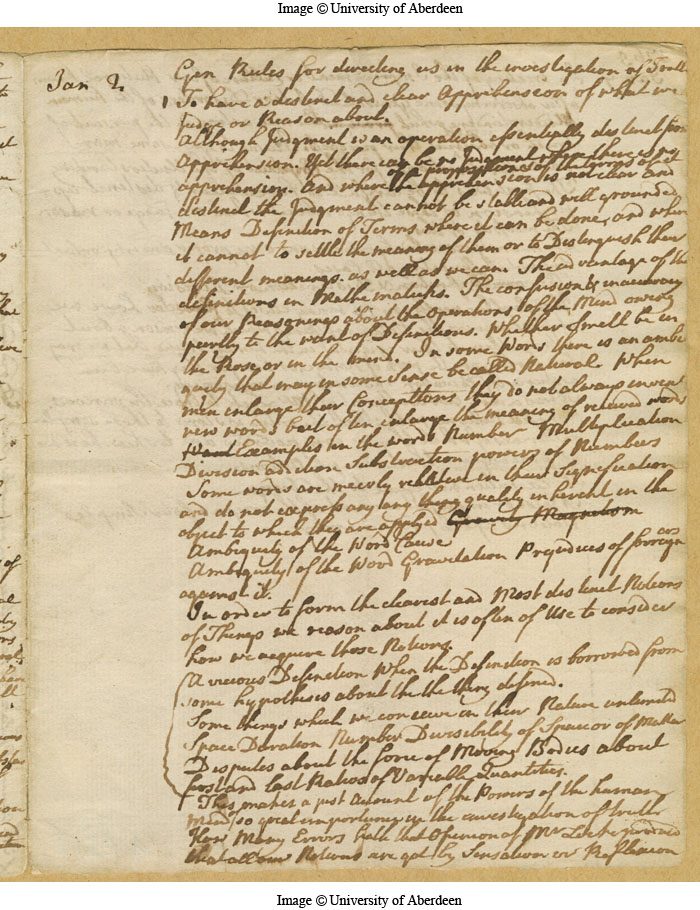 Image © University of Aberdeen
Jan 2
Gen Rules for directing us in the investigation of Truth
1 To have a distinct and clear Apprehension of what we
Judge or Reason about.
Although Judgment is an operation essentially distinct from
Apprehension. Yet there can be no Judgment where there is no
apprehension. And where the apprehension is not clear and
distinct the Judgment cannot be stable and well grounded
Means Definition of Terms where it can be done, and where
it cannot to settle the meaning of them or to Distinguish their
different meanings as well as we can. The advantage of the
definitions in Mathematicks. The confusion & inaccuracy
of our Reasonings about the operations of the Mind owing
partly to the want of Definitions. Whether Smell be in
the Rose, or in the mind. In some Words there is an ambi
guity that may in some Sense be called Natural. When
men enlarge their Conceptions they do not always invent
new words but often enlarge the meaning of received words
Examples in the words Number Multiplication
Division addition Substraction powers of Numbers
Some words are meerly relative in their Signification
and do not express any thing quality inherent in the
object to which they are applied Gravity Magnetism
Ambiguity of the Word Cause
Ambiguity of the Word Gravitation Prejudices of foreigners
against it.
In order to form the clearest and Most distinct Notions
of Things we reason about it is often of Use to consider
how we acquire those Notions.
A vicious Definition When the Definition is borrowed from
some hypothesis about the the thing defined.
Some things which we conceive in their Nature unlimited
Space Duration Number Divisibility of Space or of Matter
Disputes about the force of Moving Bodies about
first and last Ratios of Variable Quantities.
This makes a just Account of the Powers of the human
Mind, so great importance in the investigation of truth
How Many Errors hath that Opinion of Mr Locke produced
that all our Notions are got by Sensation or Reflexion
Image © University of Aberdeen